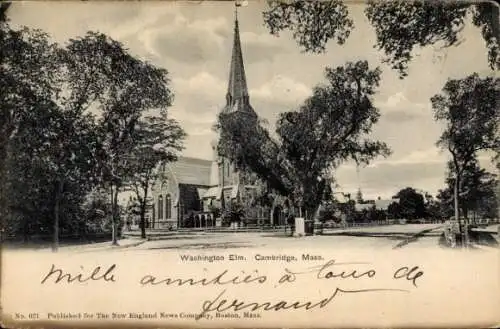 Washington Elm. Cambridge, Mass.
Mille amitiés à tous de
fernand
No. 621. Published for The New England News Company, Boston, Mass.